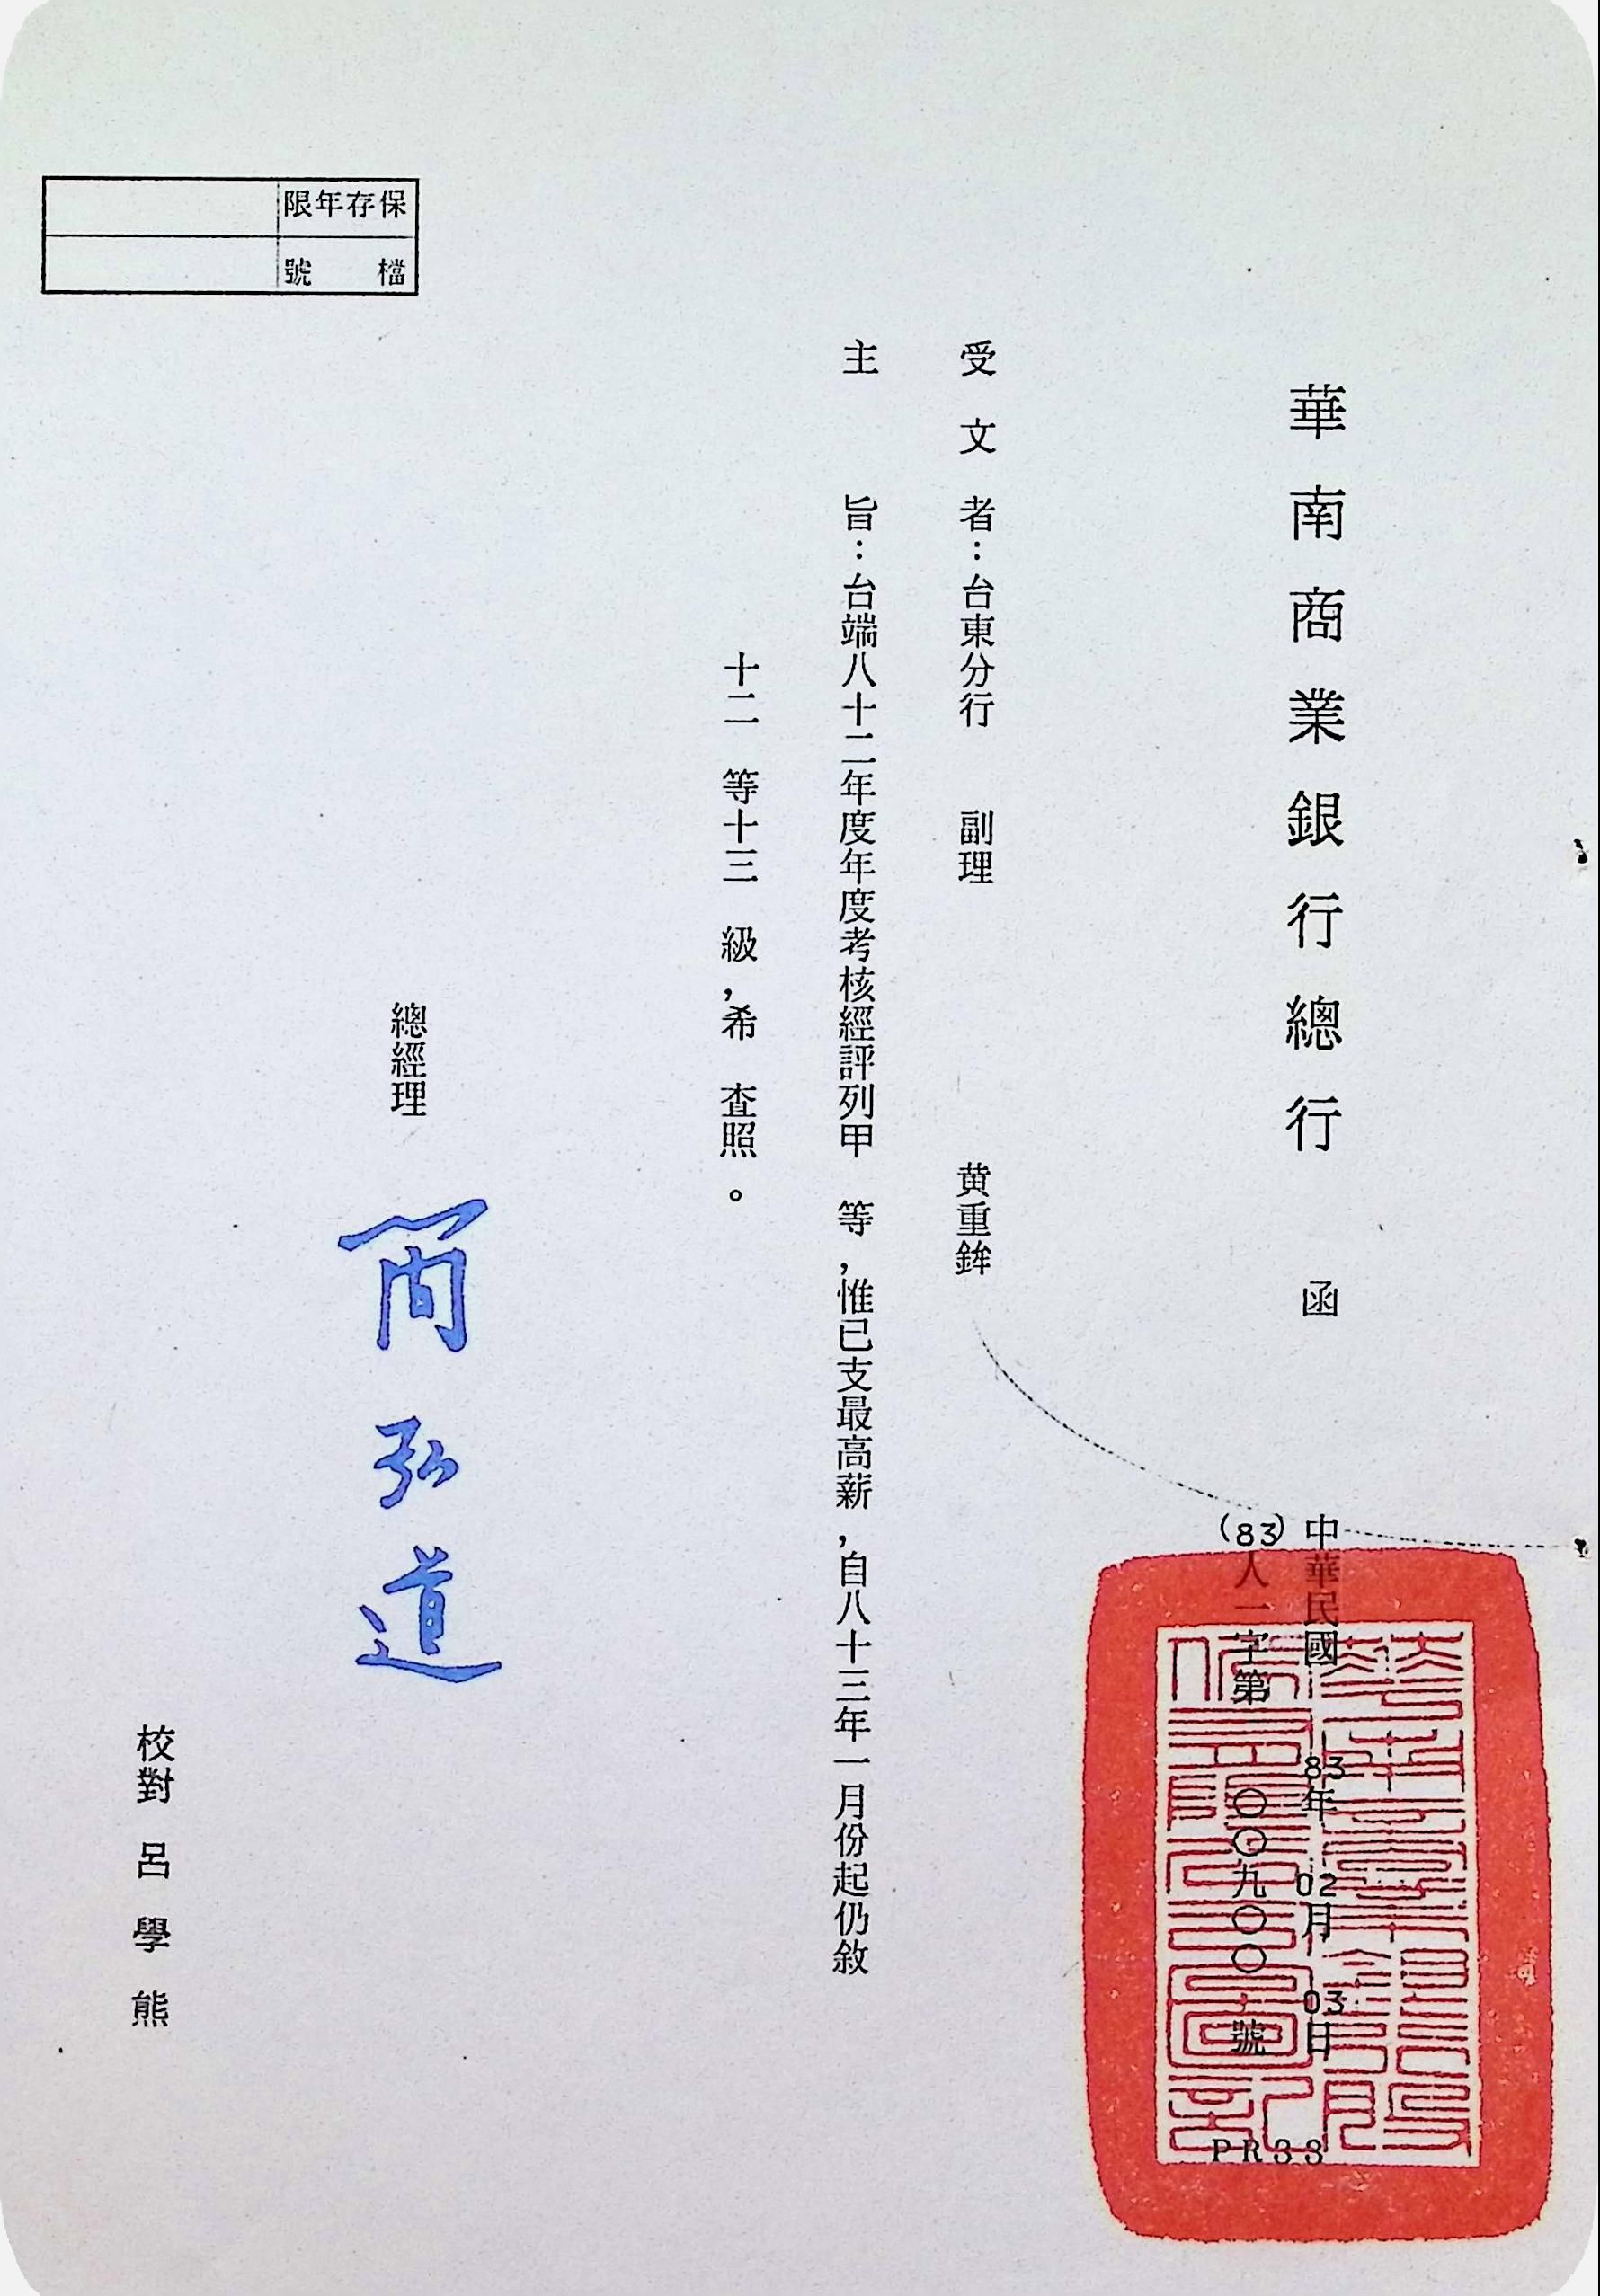 華南商業銀行總行　函
中華民國　83年　02月　03日
(83)人一字第　〇〇九〇〇　號
PR33
受文者：台東分行　副理　黄重鉾
主　旨：台端八十二年度年度考核經評列甲　等，惟已支最高薪，自八十三年一月份起仍敘
十二　等十三　級，希　查照。
總經理　簡弘道
校對　呂學熊
保存年限
檔　號